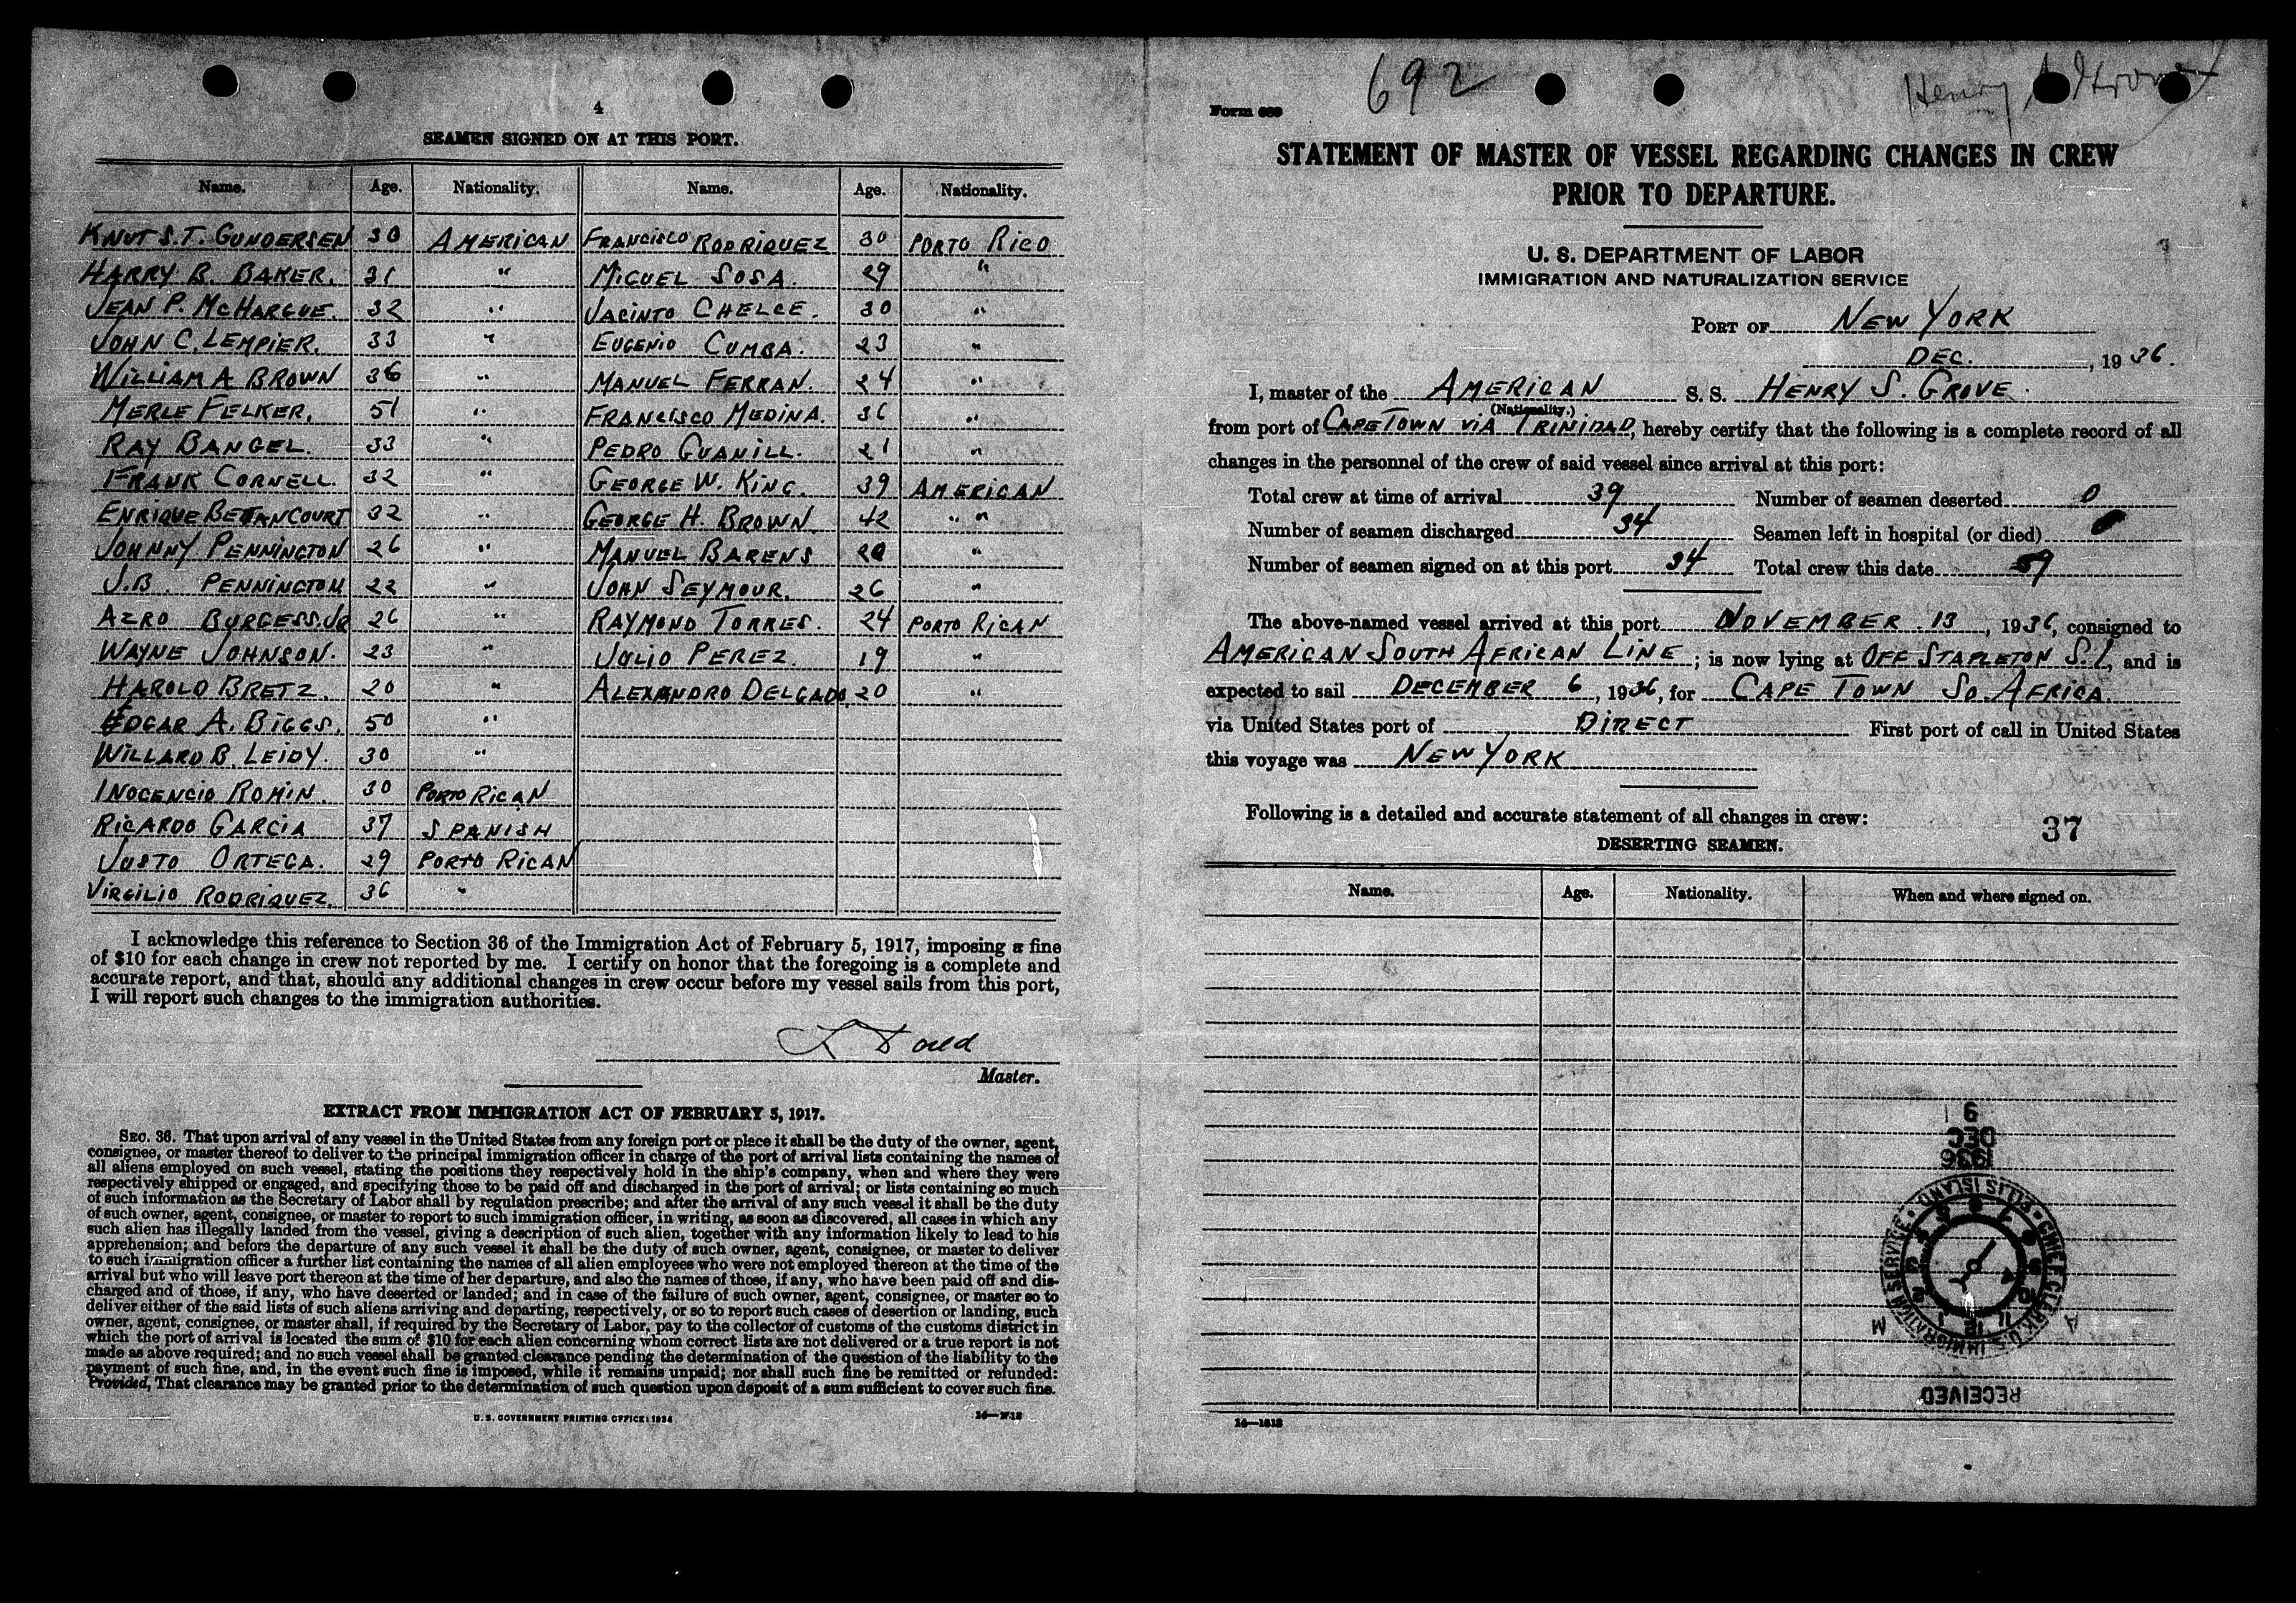 4
SEAMEN SIGNED ON AT THIS PORT.
Name. Age. Nationality. Name. Age. Nationality.
KNUT S.T. GUNDERSEN 30 AMERICAN FRANCISCO RODRIQUEZ 30 PORTO RICO
HARRY B. BAKER. 31 " MIGUEL SOSA. 29 "
JEAN P. MCHARGUE. 32 " JACINTO CHELCE. 30 "
JOHN C. LEMPIER. 33 " EUGENIO CUMBA. 23 "
WILLIAM A BROWN 36 " MANUEL FERRAN. 24 "
MERLE FELKER. 51 " FRANCISCO MEDINA. 36 "
RAY BANGEL. 33 " PEDRO GUANILL. 21 "
FRANK CORNELL. 32 " GEORGE W. KING. 39 AMERICAN
ENRIQUE BETANCOURT 32 " GEORGE H. BROWN 42 " "
JOHNNY PENNINGTON 26 " MANUEL BARENS 20 "
J.B. PENNINGTON 22 " JOHN SEYMOUR. 26 "
AZRO BURGESS.JR 26 " RAYMOND TORRES. 24 PORTO RICAN
WAYNE JOHNSON. 23 " JULIO PEREZ. 19 "
HAROLD BRETZ. 20 " ALEXANDRO DELGADO. 20 "
EDGAR A. BIGGS. 50 "
WILLARD B. LEIDY. 30 "
INOCENCIO ROMIN. 30 PORTO RICAN
RICARDO GARCIA 37 SPANISH
JUSTO ORTEGA. 29 PORTO RICAN
VIRGILIO RODRIQUEZ. 36 "
I acknowledge this reference to Section 36 of the Immigration Act of February 5, 1917, imposing a fine
of $10 for each change in crew not reported by me. I certify on honor that the foregoing is a complete and
accurate report, and that, should any additional changes in crew occur before my vessel sails from this port,
I will report such changes to the immigration authorities.
Master.
EXTRACT FROM IMMIGRATION ACT OF FEBRUARY 5, 1917.
SEC. 36. That upon arrival of any vessel in the United States from any foreign port or place it shall be the duty of the owner, agent,
consignee, or master thereof to deliver to the principal immigration officer in charge of the port of arrival lists containing the names of
all aliens employed on such vessel, stating the positions they respectively hold in the ship's company, when and where they were
respectively shipped or engaged, and specifying those to be paid off and discharged in the port of arrival; or lists containing so much
of such information as the Secretary of Labor shall by regulation prescribe; and after the arrival of any such vessel it shall be the duty
of such owner, agent, consignee, or master to report to such immigration officer, in writing, as soon as discovered, all cases in which any
such alien has illegally landed from the vessel, giving a description of such alien, together with any information likely to lead to his
apprehension; and before the departure of any such vessel it shall be the duty of such owner, agent, consignee, or master to deliver
to such immigration officer a further list containing the names of all alien employees who were not employed thereon at the time of the
arrival but who will leave port thereon at the time of her departure, and also the names of those, if any, who have been paid off and dis-
charged and of those, if any, who have deserted or landed; and in case of the failure of such owner, agent, consignee, or master so to
deliver either of the said lists of such aliens arriving and departing, respectively, or so to report such cases of desertion or landing, such
owner, agent, consignee, or master shall, if required by the Secretary of Labor, pay to the collector of customs of the customs district in
which the port of arrival is located the sum of $10 for each alien concerning whom correct lists are not delivered or a true report is not
made as above required; and no such vessel shall be granted clearance pending the determination of the question of the liability to the
payment of such fine, and, in the event such fine is imposed, while it remains unpaid; nor shall such fine be remitted or refunded:
Provided, That clearance may be granted prior to the determination of such question upon deposit of a sum sufficient to cover such fine.
U. S. GOVERNMENT PRINTING OFFICE: 1934
692
Henry
Form 689
STATEMENT OF MASTER OF VESSEL REGARDING CHANGES IN CREW
PRIOR TO DEPARTURE.
U. S. DEPARTMENT OF LABOR
IMMIGRATION AND NATURALIZATION SERVICE
PORT OF NEW YORK
DEC. , 1936.
I, master of the AMERICAN S. S. HENRY S. GROVE.
(Nationality.)
from port of CAPETOWN VIA TRINIDAD, hereby certify that the following is a complete record of all
changes in the personnel of the crew of said vessel since arrival at this port:
Total crew at time of arrival 39 Number of seamen deserted 0
Number of seamen discharged 34 Seamen left in hospital (or died) 0
Number of seamen signed on at this port 34 Total crew this date 39
The above-named vessel arrived at this port NOVEMBER 13, 1936, consigned to
AMERICAN SOUTH AFRICAN LINE; is now lying at OFF STAPLETON S.I., and is
expected to sail DECEMBER 6, 1936, for CAPE TOWN SO. AFRICA.
via United States port of DIRECT First port of call in United States
this voyage was NEW YORK
Following is a detailed and accurate statement of all changes in crew:
37
DESERTING SEAMEN.
Name. Age. Nationality. When and where signed on.
9
DEC
1936
CHIEF CLERK U. S. IMMIGRATION SERVICE • ELLIS ISLAND
A M
RECEIVED
14—1612